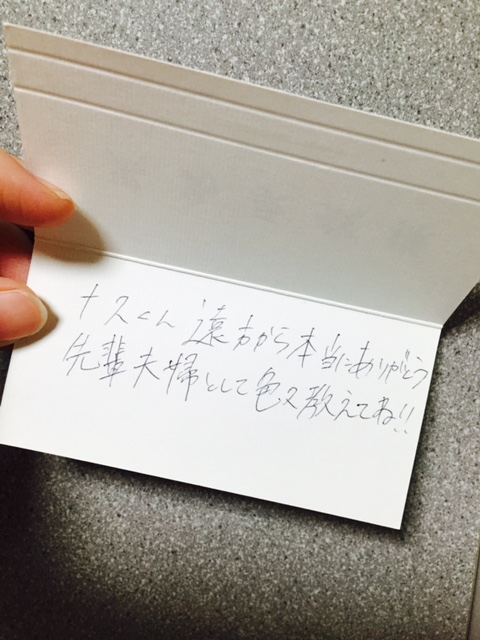 ナスくん 遠方から本当にありがとう
先輩夫婦として色々教えてね!!